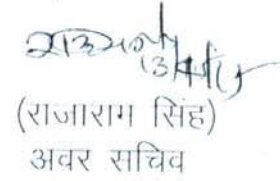 (राजाराम सिंह)
अवर सचिव